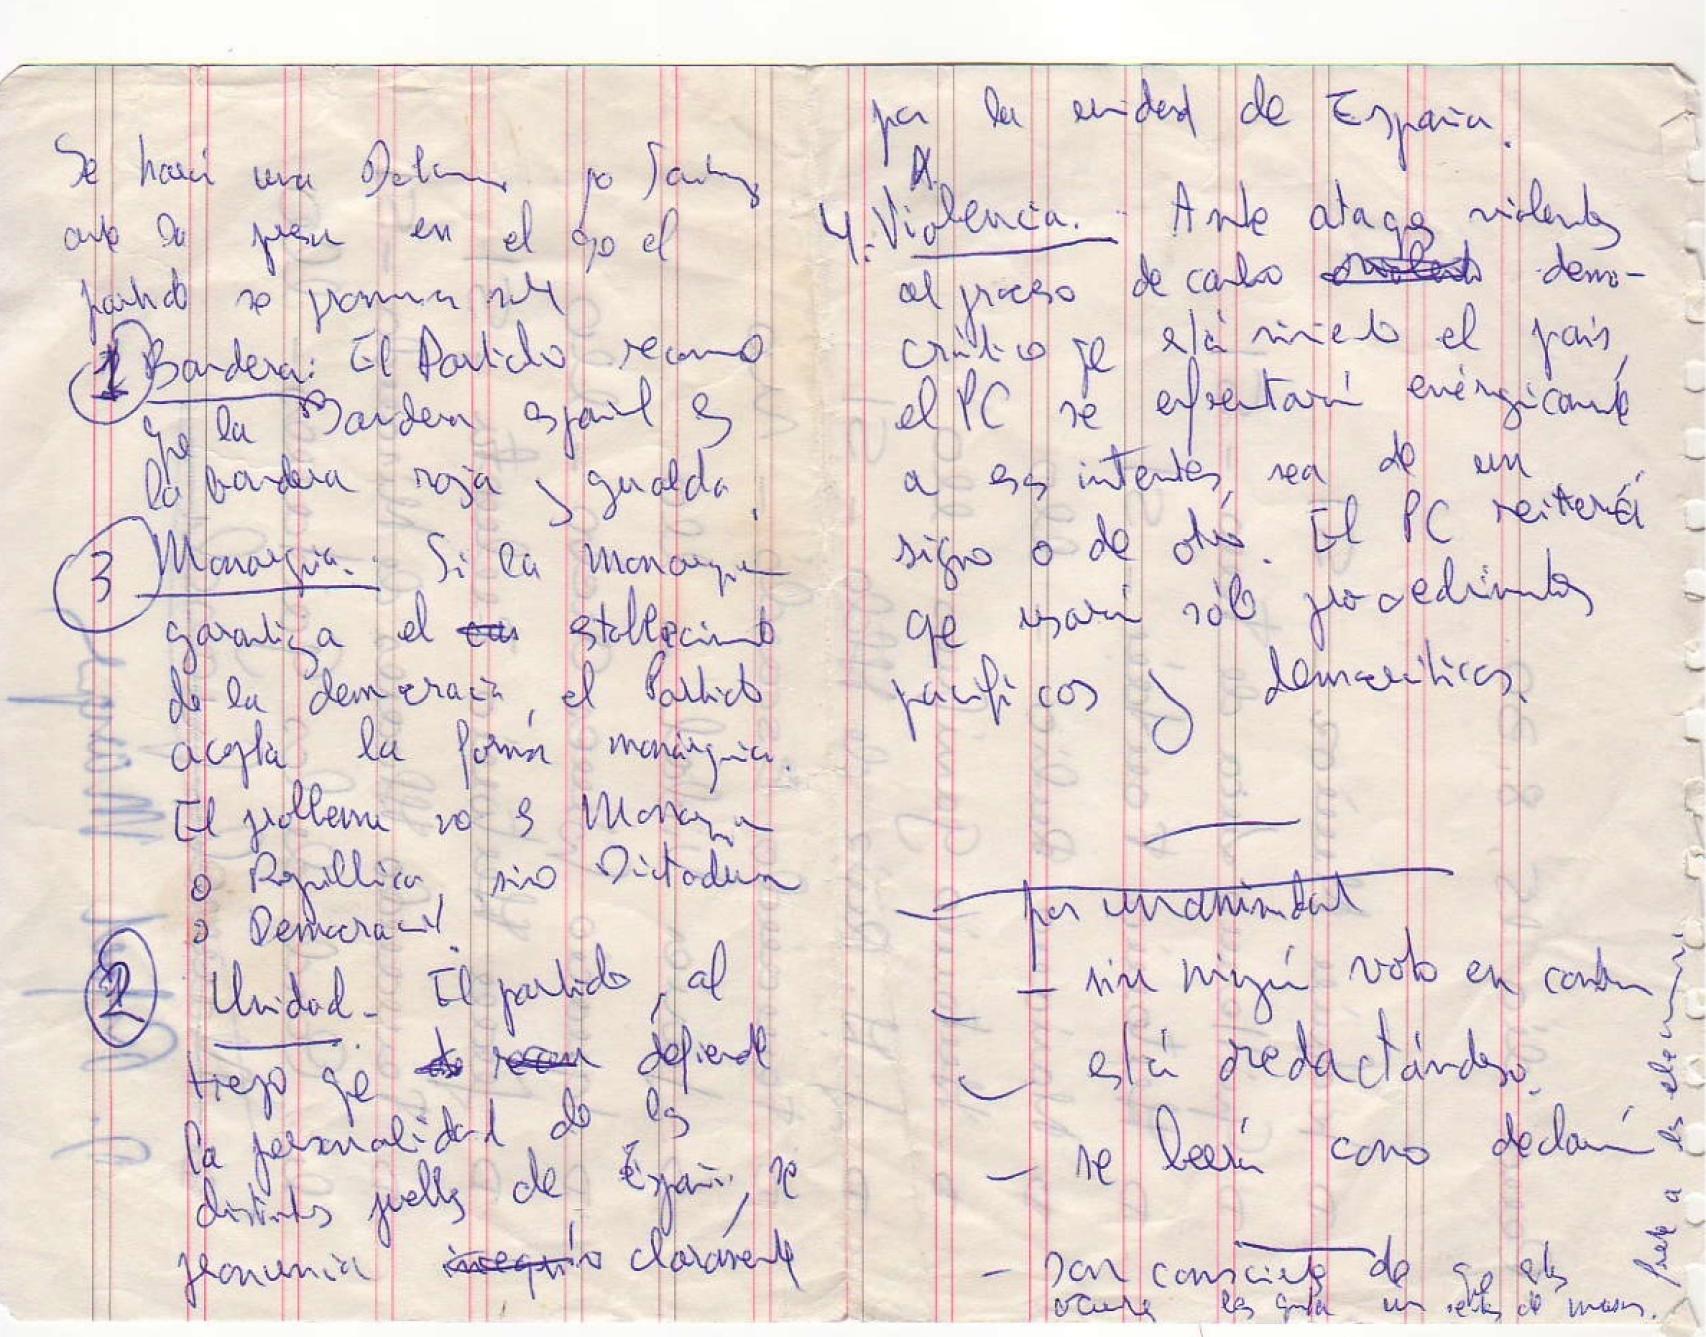 Se hará una por Santiago
ante la prensa en el qe el
partido se pronuncia sobre
1 Bandera: El Partido reconoce
qe la Bandera española es
la bandera roja y gualda.
3 Monarquía.- Si la monarquía
garantiza el establecimiento
de la democracia, el Partido
acepta la forma monárquica.
El problema no es Monarquía
o República, sino Dictadura
o Democracia.
2 Unidad.- El partido, al
tiempo qe defiende
la personalidad de los
distintos pueblos de España, se
pronuncia claramente
por la unidad de España.
4. Violencia.- Ante ataques violentos
al proceso de cambio demo-
crático qe está viviendo el país,
el PC se enfrentará enérgicamente
a esos intentos, sea de un
signo o de otro. El PC reiterará
qe usará sólo procedimientos
pacíficos y democráticos.
— por unanimidad
— sin ningún voto en contra
— está redactándose.
— se leerá como declaración
— son conscientes de que esto
ocurre les quita un de masas.
frente a las